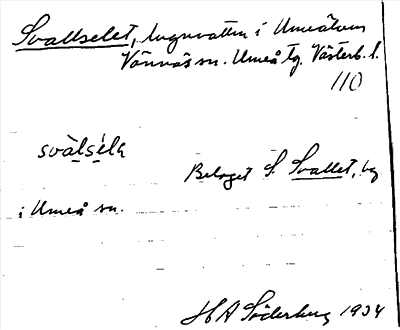 Svallselet, lugnvatten i Umeälven
Vännäs sn. Umeå tg. Västerb. l.
110
svàlsẹ́lạ
Beläget S. Svallet, by
i Umeå sn.
H A Söderberg 1934